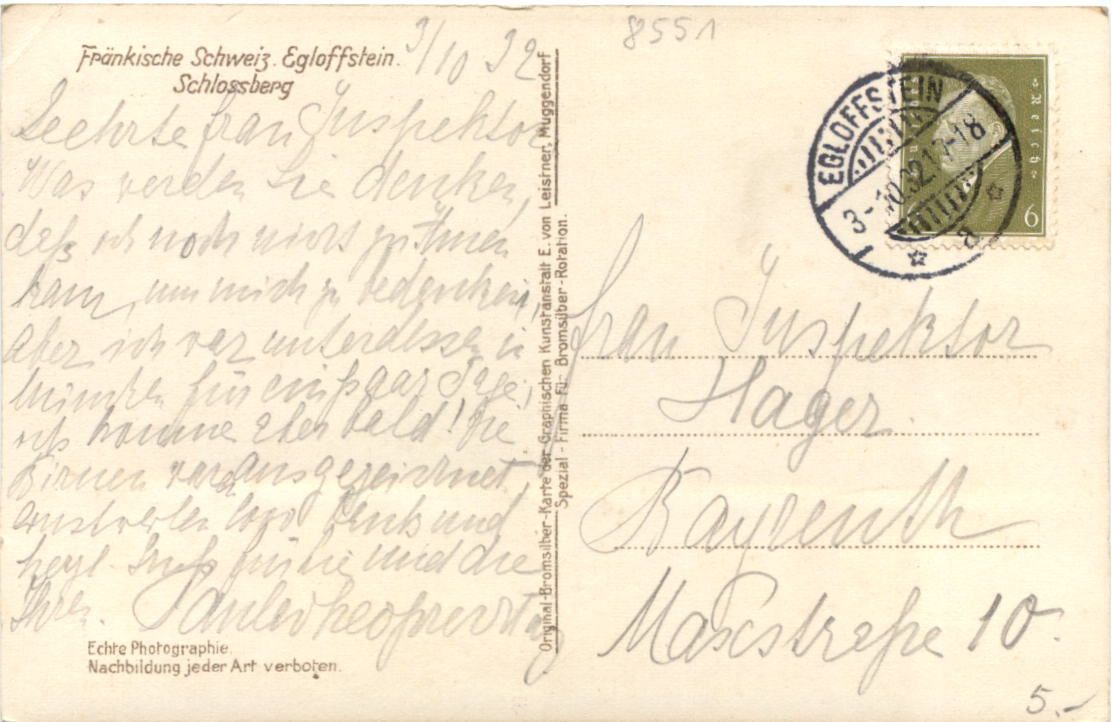 Fränkische Schweiz. Egloffstein.
Schlossberg
3/10 32
8551
Frau Inspektor
Was werden Sie denken,
daß ich noch nicht zu Ihnen
kam, um mich zu bedenken,
aber ich war unterdessen in
München für ein paar Tage,
komme aber bald! Die
Birnen waren ausgezeichnet,
Dank und
herzl. Gruß für Sie und die
Ihren.
Echte Photographie.
Nachbildung jeder Art verboten.
Original-Bromsilber-Karte der Graphischen Kunstanstalt E. von Leistner, Muggendorf
Spezial-Firma für Bromsilber-Rotation.
EGLOFFSTEIN
3-10.32.17-18
a
Reich
6
Frau Inspektor
Hager
Bayreuth
Maxstraße 10.
5.-